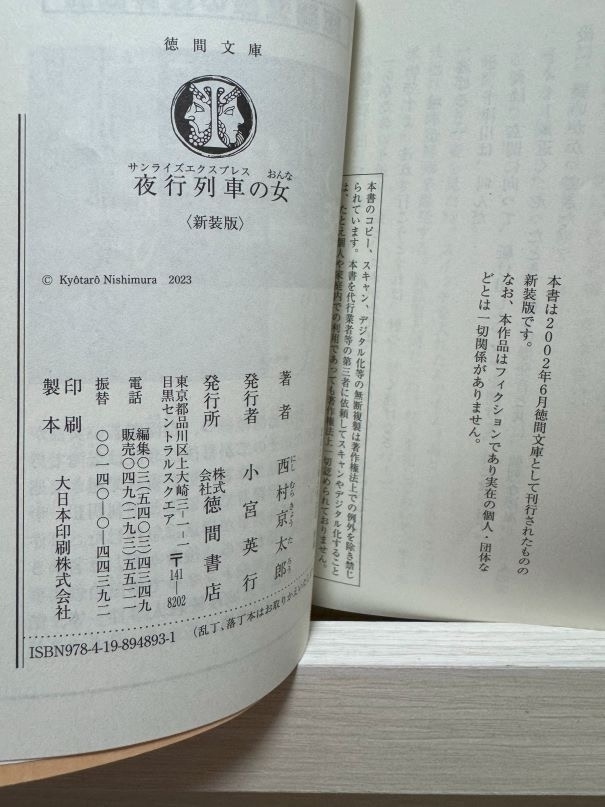 本書は2002年6月徳間文庫として刊行されたものの
新装版です。
なお、本作品はフィクションであり実在の個人・団体な
どとは一切関係がありません。
本書のコピー、スキャン、デジタル化等の無断複製は著作権法上での例外を除き禁じ
られています。本書を代行業者等の第三者に依頼してスキャンやデジタル化すること
は、たとえ個人や家庭内での利用であっても著作権法上一切認められておりません。
徳間文庫
サンライズエクスプレス おんな
夜行列車の女
〈新装版〉
© Kyôtarô Nishimura 2023
著者 西村京太郎
にしむらきょうたろう
発行者 小宮英行
発行所 株式会社徳間書店
東京都品川区上大崎三―一―一
目黒セントラルスクエア 〒141―8202
電話 編集〇三(五四〇三)四三四九
販売〇四九(二九三)五五二一
振替 〇〇一四〇―〇―四四三九二
印刷
製本 大日本印刷株式会社
(乱丁、落丁本はお取りかえいた
ISBN978-4-19-894893-1